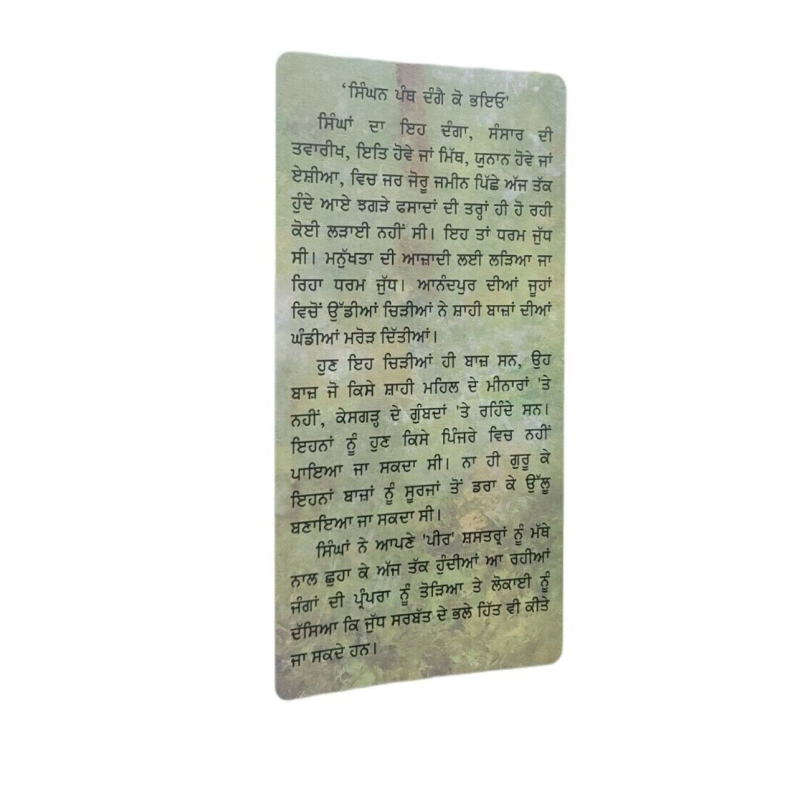 ‘ਸਿੰਘਨ ਪੰਥ ਦੰਗੈ ਕੋ ਭਇਓ'
ਸਿੰਘਾਂ ਦਾ ਇਹ ਦੰਗਾ, ਸੰਸਾਰ ਦੀ
ਤਵਾਰੀਖ, ਇਤਿ ਹੋਵੇ ਜਾਂ ਮਿੱਥ, ਯੁਨਾਨ ਹੋਵੇ ਜਾਂ
ਏਸ਼ੀਆ, ਵਿਚ ਜਰ ਜੋਰੂ ਜਮੀਨ ਪਿੱਛੇ ਅੱਜ ਤੱਕ
ਹੁੰਦੇ ਆਏ ਝਗੜੇ ਫਸਾਦਾਂ ਦੀ ਤਰ੍ਹਾਂ ਹੀ ਹੋ ਰਹੀ
ਕੋਈ ਲੜਾਈ ਨਹੀਂ ਸੀ। ਇਹ ਤਾਂ ਧਰਮ ਜੁੱਧ
ਸੀ। ਮਨੁੱਖਤਾ ਦੀ ਆਜ਼ਾਦੀ ਲਈ ਲੜਿਆ ਜਾ
ਰਿਹਾ ਧਰਮ ਜੁੱਧ। ਆਨੰਦਪੁਰ ਦੀਆਂ ਜੂਹਾਂ
ਵਿਚੋਂ ਉੱਡੀਆਂ ਚਿੜੀਆਂ ਨੇ ਸ਼ਾਹੀ ਬਾਜ਼ਾਂ ਦੀਆਂ
ਘੰਡੀਆਂ ਮਰੋੜ ਦਿੱਤੀਆਂ।
ਹੁਣ ਇਹ ਚਿੜੀਆਂ ਹੀ ਬਾਜ਼ ਸਨ, ਉਹ
ਬਾਜ਼ ਜੋ ਕਿਸੇ ਸ਼ਾਹੀ ਮਹਿਲ ਦੇ ਮੀਨਾਰਾਂ 'ਤੇ
ਨਹੀਂ, ਕੇਸਗੜ੍ਹ ਦੇ ਗੁੰਬਦਾਂ 'ਤੇ ਰਹਿੰਦੇ ਸਨ।
ਇਹਨਾਂ ਨੂੰ ਹੁਣ ਕਿਸੇ ਪਿੰਜਰੇ ਵਿਚ ਨਹੀਂ
ਪਾਇਆ ਜਾ ਸਕਦਾ ਸੀ। ਨਾ ਹੀ ਗੁਰੂ ਕੇ
ਇਹਨਾਂ ਬਾਜ਼ਾਂ ਨੂੰ ਸੂਰਜਾਂ ਤੋਂ ਡਰਾ ਕੇ ਉੱਲੂ
ਬਣਾਇਆ ਜਾ ਸਕਦਾ ਸੀ।
ਸਿੰਘਾਂ ਨੇ ਆਪਣੇ 'ਪੀਰ' ਸ਼ਸਤਰ੍ਹਾਂ ਨੂੰ ਮੱਥੇ
ਨਾਲ ਛੁਹਾ ਕੇ ਅੱਜ ਤੱਕ ਹੁੰਦੀਆਂ ਆ ਰਹੀਆਂ
ਜੰਗਾਂ ਦੀ ਪ੍ਰੰਪਰਾ ਨੂੰ ਤੋੜਿਆ ਤੇ ਲੋਕਾਈ ਨੂੰ
ਦੱਸਿਆ ਕਿ ਜੁੱਧ ਸਰਬੱਤ ਦੇ ਭਲੇ ਹਿੱਤ ਵੀ ਕੀਤੇ
ਜਾ ਸਕਦੇ ਹਨ।